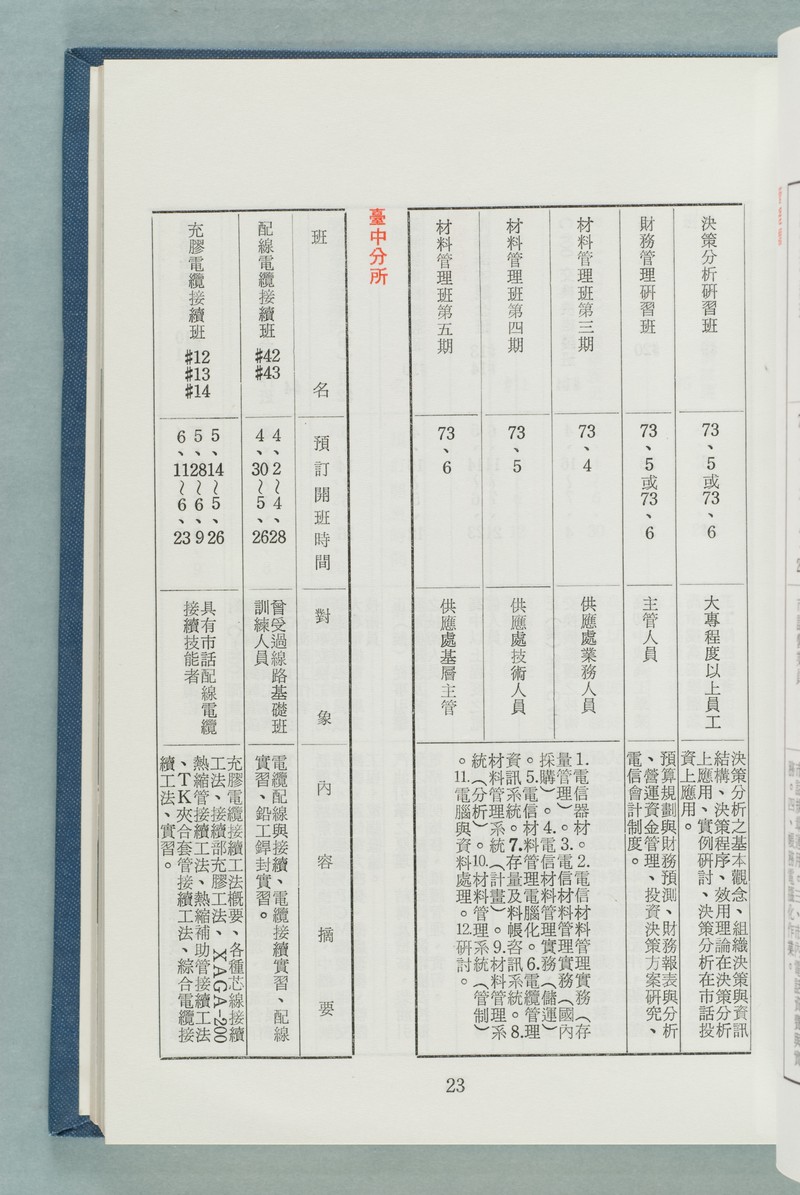 決策分析硏習班
73、5或73、6
大專程度以上員工
決策分析之基本觀念、組織決策與資訊
結構、決策程序、效用理論在決策分析
上應用、實例研討、決策分析在市話投
資上應用。
財務管理硏習班
73、5或73、6
主管人員
預算規劃與財務預測、財務報表與分析
、營運資金管理、投資決策方案研究、
電信會計制度。
材料管理班第三期
73、4
供應處業務人員
材料管理班第四期
73、5
供應處技術人員
材料管理班第五期
73、6
供應處基層主管
1.電信器材。2.電信材料管理實務（存
量管理）。3.電信材料管理實務（國內
採購）。4.電信材料管理實務（儲運）
。5.電信材料管理電腦化。6.電纜管理
資訊系統。7.存量及料帳咨訊系統。8.
材料管理系統（計畫）。9.材料管理系
統（分析）。10.材料管理系統（管制）
。11.電腦與資料處理。12.研討。
臺中分所
班名
預訂開班時間
對象
內容摘要
配線電纜接續班
#42
#43
4、2～4、28
4、30～5、26
曾受過線路基礎班
訓練人員
電纜配線與接續、電纜接續實習、配線
實習、鉛工銲封實習。
充膠電纜接續班
#12
#13
#14
5、14～5、26
5、28～6、9
6、11～6、23
具有市話配線電纜
接續技能者
充膠電纜接續工法概要、各種芯線接續
工法、接續部充膠工法、XAGA-200
熱縮管接續工法、熱縮補助管接續工法
、TK夾合套管接續工法、綜合電纜接
續工法、實習。
23